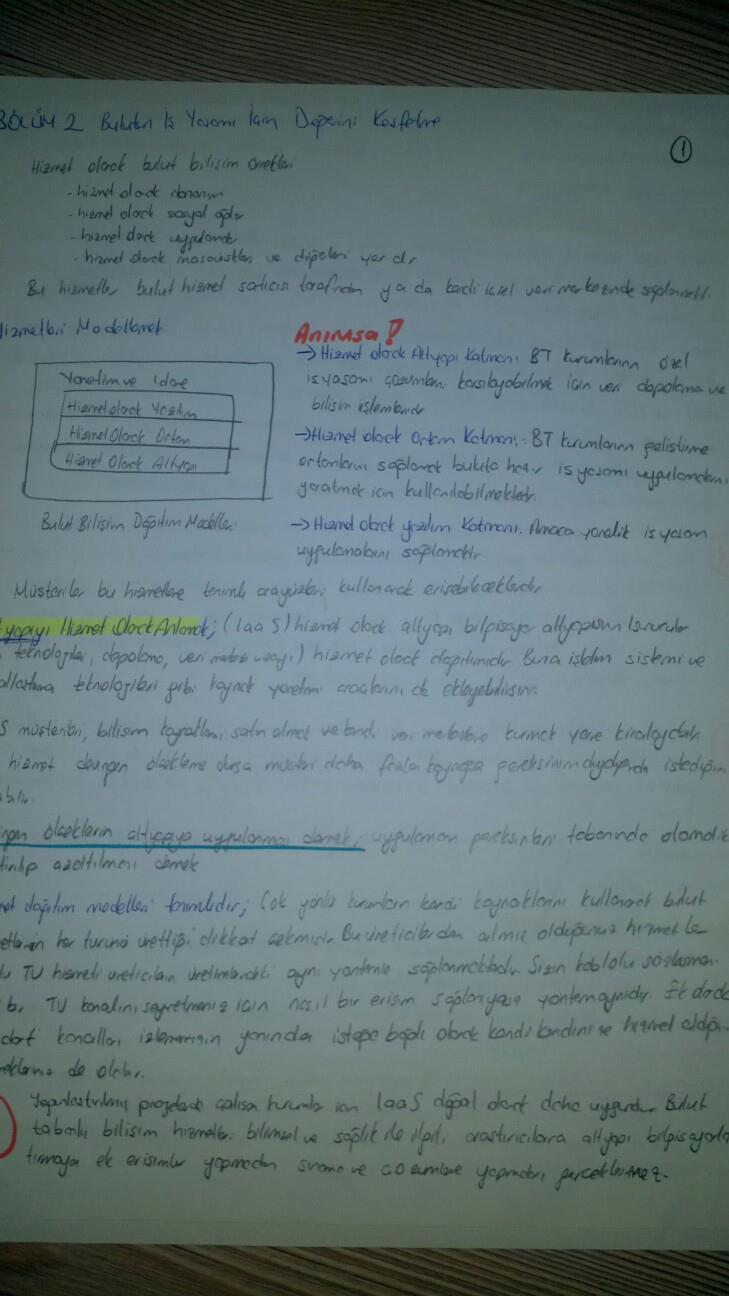 BÖLÜM 2 Bulutun İş Yaşamı İçin Değerini Keşfetme
1
Hizmet olarak bulut bilişim örnekleri
- hizmet olarak donanım
- hizmet olarak sosyal ağlar
- hizmet olarak uygulamalar
- hizmet olarak masaüstleri ve diğerleri vardır
Bu hizmetler bulut hizmet satıcısı tarafından ya da kendi içsel veri merkezinde sağlanmakt.
Hizmetleri Modellemek
Yönetim ve İdare
Hizmet olarak Yazılım
Hizmet Olarak Ortam
Hizmet Olarak Altyapı
Bulut Bilişim Dağıtım Modelleri
Anımsa!
→ Hizmet olarak Altyapı Katmanı: BT kurumlarının özel
iş yaşamı çözümleri karşılayabilmek için veri depolama ve
bilişim işlemleridir
→ Hizmet olarak Ortam Katmanı: BT kurumlarının geliştirme
ortamlarını sağlamak bulutta hazır iş yaşamı uygulamaları
yaratmak için kullanılabilmektedir.
→ Hizmet olarak yazılım Katmanı: Amaca yönelik iş yaşam
uygulamalarını sağlamaktır
Müşteriler bu hizmetlere tanımlı arayüzleri kullanarak erişebileceklerdir
yapıyı Hizmet Olarak Anlamak; (IaaS) hizmet olarak altyapı bilgisayar altyapısının
teknolojileri, depolama, veri merkezi uzayı) hizmet olarak dağıtımıdır Buna işletim sistemi ve
teknolojileri gibi kaynak yönetimi araçlarını da ekleyebilirsin.
S müşterileri, bilişim kaynakları satın almak ve kendi veri merkezlerini kurmak yerine kiralayacaktır
hizmet devingen ölçekleme olursa müşteri daha fazla kaynağa gereksinim duyduğunda istediğini
ölçeklerin altyapıya uygulanması demek, uygulamanın gereksinimleri tabanında otomatik
azaltılması demek
dağıtım modelleri tanımlıdır; Çok yönlü kurumların kendi kaynaklarını kullanarak bulut
her türünü ürettiği dikkat çekmiştir. Bu üreticilerden almış olduğunuz hizmetle
TV hizmeti üreticilerin üretimlerindeki aynı yöntemle sağlanmaktadır. Sizin kablolu sözleşmen
bir TV kanalını seyretmeniz için nasıl bir erişim sağlanıyorsa yöntem aynıdır. Ek olarak
kanalları izlemenizin yanında isteğe bağlı olarak kendi kendinize hizmet
de olabilir.
projelerde çalışan kurumlar için IaaS doğal olarak daha uygundur. Bulut
tabanlı bilişim hizmetleri bilimsel ve sağlık ile ilgili araştırıcılara altyapı
ek erişimler yapmadan sınama ve çözümleme yapmaları